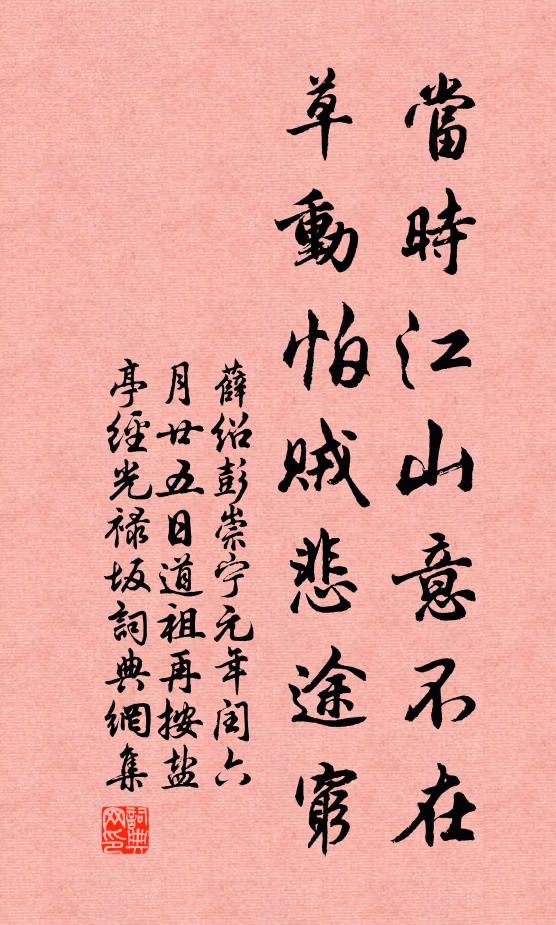 當時江山意不在
草動怕賊悲途窮
薛紹彭崇宁元年闰六
月廿五日道祖再按盐
亭經光禄坂詞典網集
詞典网印